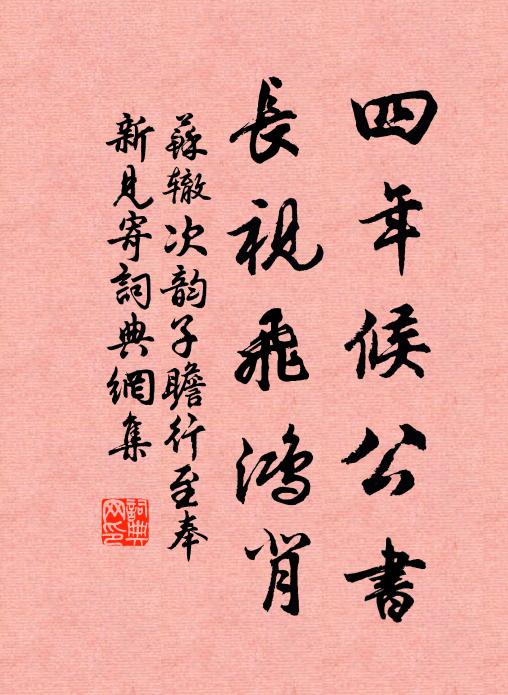 四年候公書
長視飛鴻背
蘇辙次韵子瞻行至奉
新見寄詞典網集
詞典網印